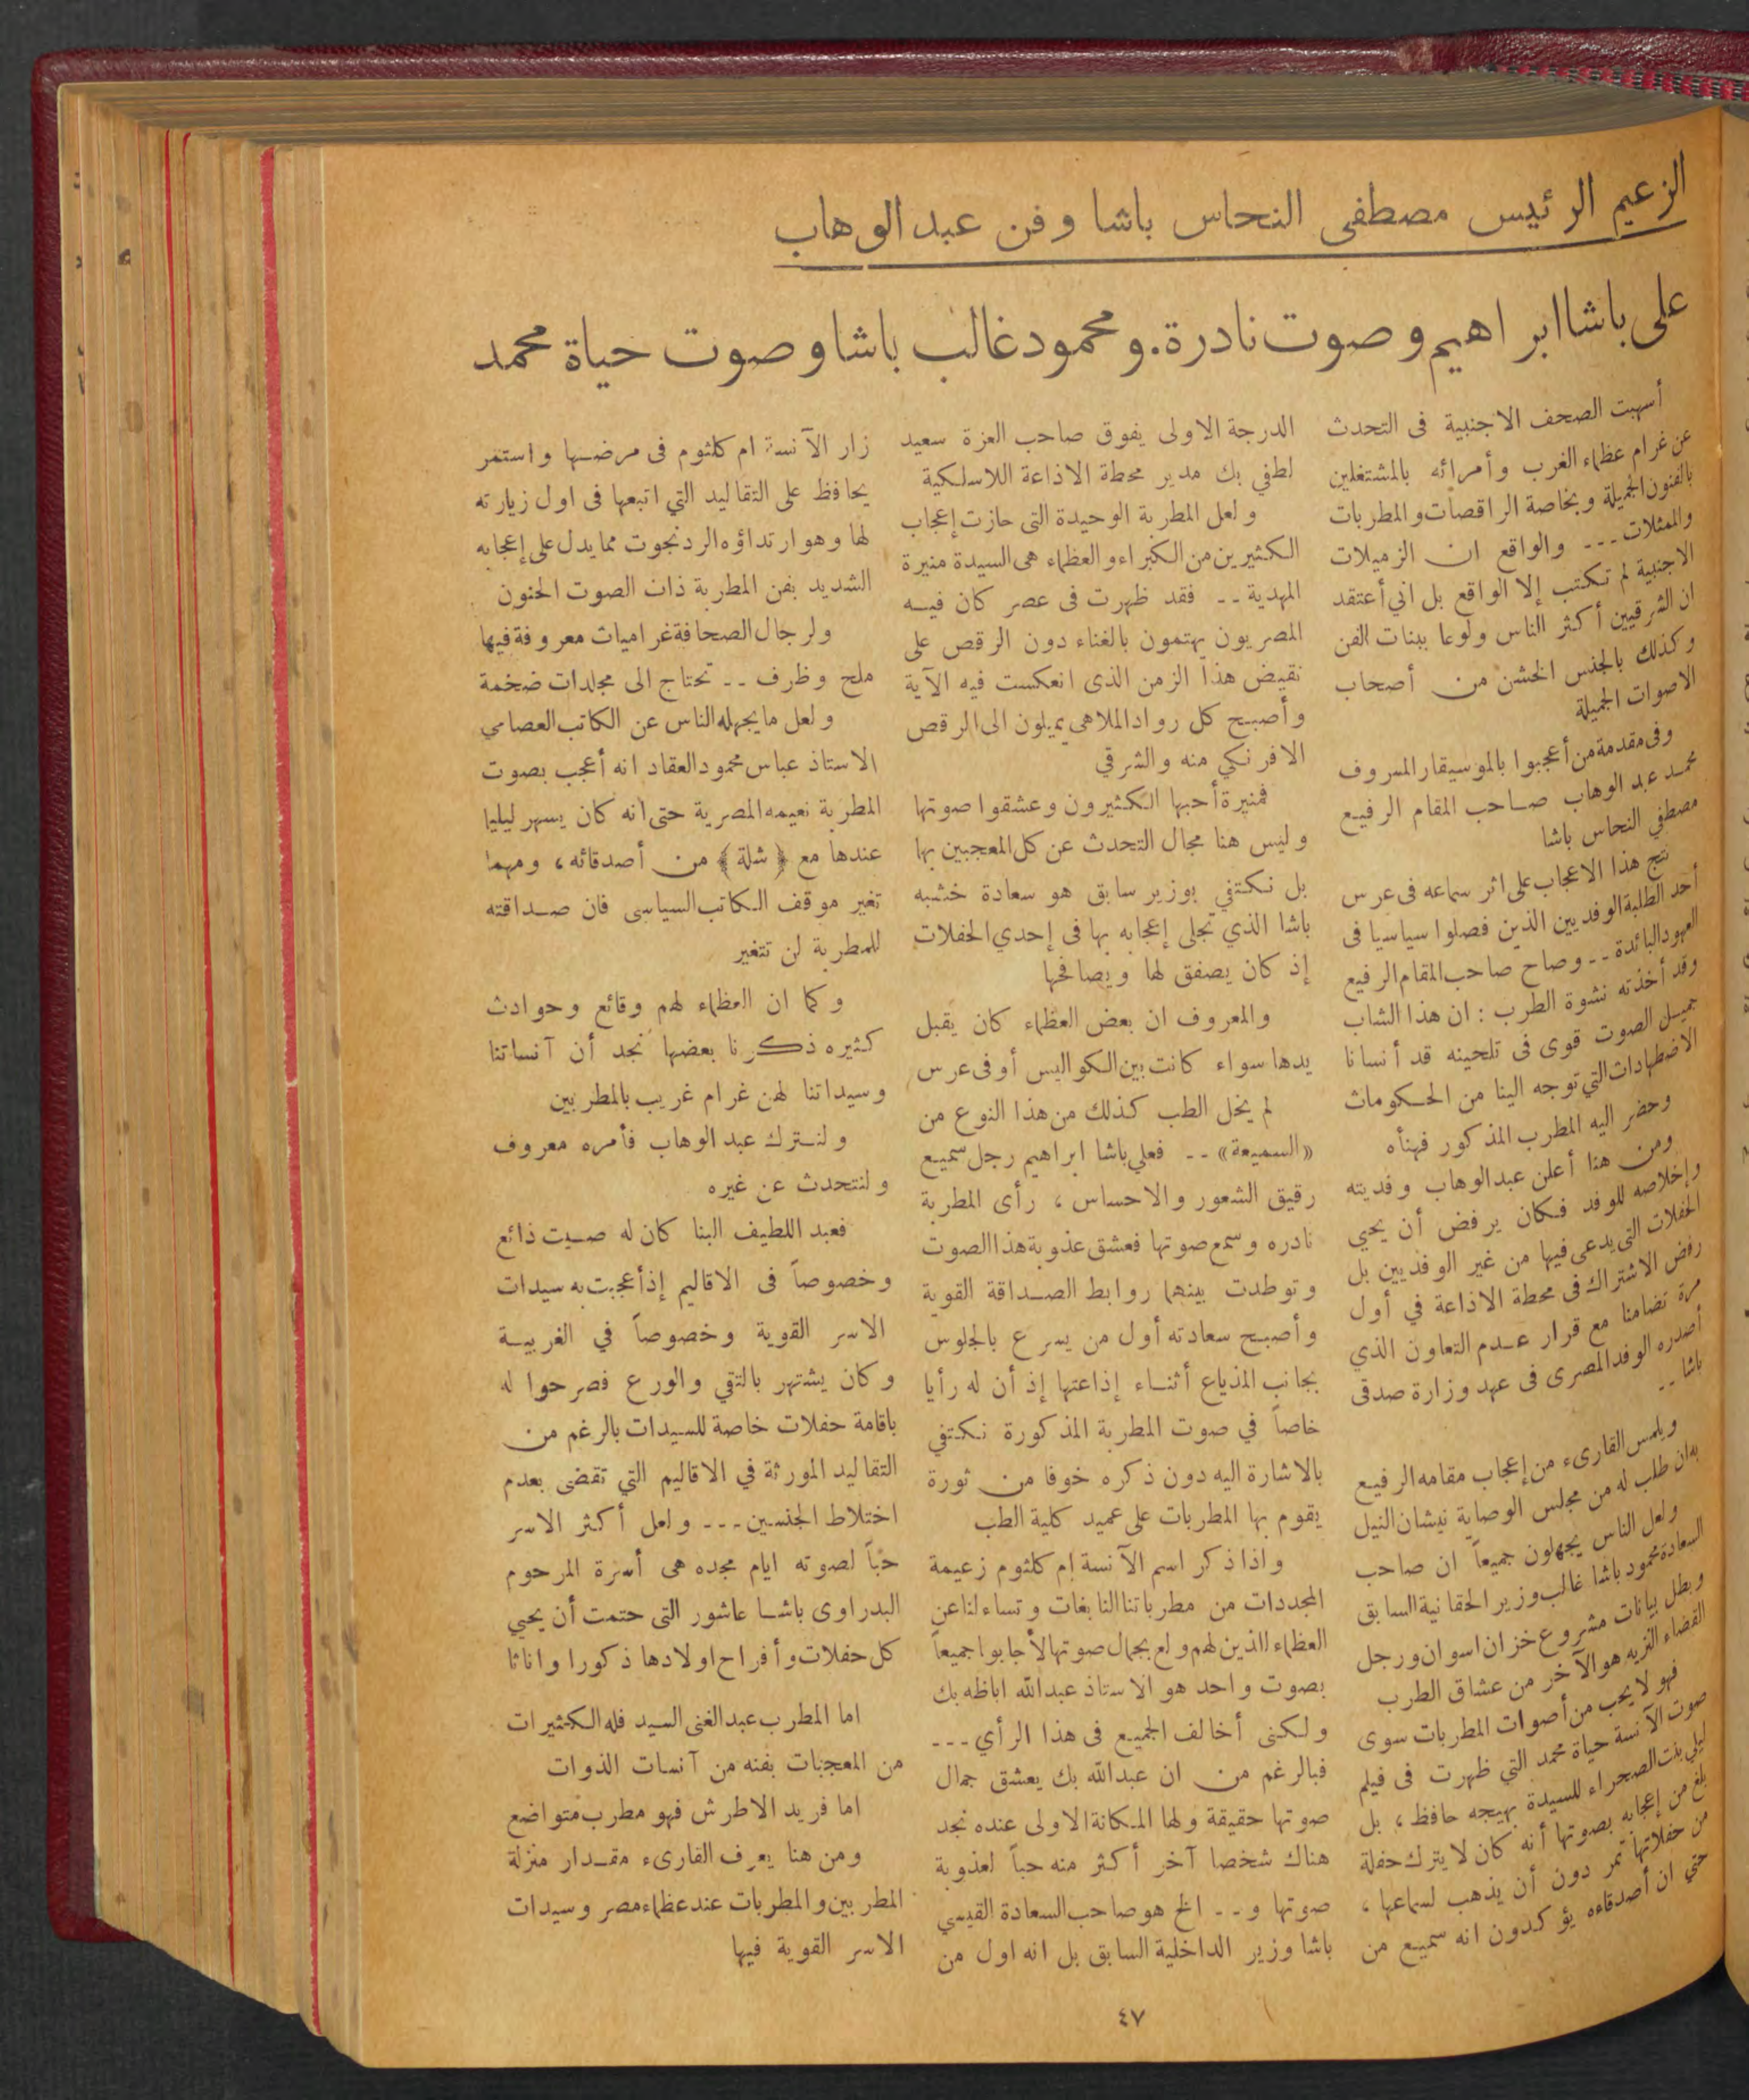 الزعيم الرئيس مصطفى النحاس باشا وفن عبد الوهاب
على باشا ابراهيم وصوت نادرة. ومحمود غالب باشا وصوت حياة محمد
أسهبت الصحف الاجنبية فى التحدث
عن غرام عظماء الغرب وأمرائه بالمشتغلين
بالفنون الجميلة وبخاصة الراقصات والمطربات
والممثلات --- والواقع ان الزميلات
الاجنبية لم تكتب إلا الواقع بل اني أعتقد
ان الشرقيين أكثر الناس ولوعا ببنات الفن
وكذلك بالجنس الخشن من أصحاب
الاصوات الجميلة
وفى مقدمة من أعجبوا بالموسيقار المعروف
محمد عبد الوهاب صاحب المقام الرفيع
مصطفي النحاس باشا
نتج هذا الاعجاب على اثر سماعه فى عرس
أحد الطلبة الوفديين الذين فصلوا سياسيا فى
العهود البائدة -- وصاح صاحب المقام الرفيع
وقد أخذته نشوة الطرب : ان هذا الشاب
جميل الصوت قوى فى تلحينه قد أنسانا
الاضطهادات التي توجه الينا من الحكومات
وحضر اليه المطرب المذكور فهنأه
ومن هنا أعلن عبد الوهاب وفديته
وإخلاصه للوفد فكان يرفض أن يحيي
الحفلات التى يدعى فيها من غير الوفديين بل
رفض الاشتراك فى محطة الاذاعة في أول
مرة تضامنا مع قرار عدم التعاون الذي
أصدره الوفد المصرى فى عهد وزارة صدقى
باشا --
ويلمس القارىء من إعجاب مقامه الرفيع
به ان طلب له من مجلس الوصاية نيشان النيل
ولعل الناس يجهلون جميعاً ان صاحب
السعادة محمود باشا غالب وزير الحقانية السابق
وبطل بيانات مشروع خزان اسوان ورجل
القضاء النزيه هو الآخر من عشاق الطرب
فهو لا يحب من أصوات المطربات سوى
صوت الآنسة حياة محمد التي ظهرت فى فيلم
ليلي بنت الصحراء للسيدة بهيجه حافظ ، بل
بلغ من إعجابه بصوتها أنه كان لا يترك حفلة
من حفلاتها تمر دون أن يذهب لسماعها ،
حتي ان أصدقاءه يؤكدون انه سميع من
الدرجة الاولى يفوق صاحب العزة سعيد
لطفي بك مدير محطة الاذاعة اللاسلكية
ولعل المطربة الوحيدة التى حازت إعجاب
الكثيرين من الكبراء والعظماء هى السيدة منيرة
المهدية -- فقد ظهرت فى عصر كان فيه
المصريون يهتمون بالغناء دون الرقص على
نقيض هذا الزمن الذى انعكست فيه الآية
وأصبح كل رواد الملاهى يميلون الى الرقص
الافرنكي منه والشرقي
فمنيرة أحبها الكثيرون وعشقوا صوتها
وليس هنا مجال التحدث عن كل المعجبين بها
بل نكتفي بوزير سابق هو سعادة خشبه
باشا الذي تجلى إعجابه بها فى إحدي الحفلات
إذ كان يصفق لها ويصافحها
والمعروف ان بعض العظماء كان يقبل
يدها سواء كانت بين الكواليس أو فى عرس
لم يخل الطب كذلك من هذا النوع من
«السميعة» -- فعلي باشا ابراهيم رجل سميع
رقيق الشعور والاحساس ، رأى المطربة
نادره وسمع صوتها فعشق عذوبة هذا الصوت
وتوطدت بينهما روابط الصداقة القوية
وأصبح سعادته أول من يسرع بالجلوس
بجانب المذياع أثناء إذاعتها إذ أن له رأيا
خاصاً في صوت المطربة المذكورة نكتفي
بالاشارة اليه دون ذكره خوفا من ثورة
يقوم بها المطربات على عميد كلية الطب
واذا ذكر اسم الآنسة ام كلثوم زعيمة
المجددات من مطرباتنا النابغات وتساءلنا عن
العظماء الذين لهم ولع بجمال صوتها لأجابوا جميعاً
بصوت واحد هو الاستاذ عبد الله اباظه بك
ولكنى أخالف الجميع فى هذا الرأي ---
فبالرغم من ان عبد الله بك يعشق جمال
صوتها حقيقة ولها المكانة الاولى عنده نجد
هناك شخصا آخر أكثر منه حباً لعذوبة
صوتها و -- الخ هو صاحب السعادة القيسي
باشا وزير الداخلية السابق بل انه اول من
زار الآنسة ام كلثوم فى مرضها واستمر
يحافظ على التقاليد التي اتبعها فى اول زيارته
لها وهو ارتداؤه الردنجوت مما يدل على إعجابه
الشديد بفن المطربة ذات الصوت الحنون
ولرجال الصحافة غراميات معروفة فيها
ملح وظرف -- تحتاج الى مجلدات ضخمة
ولعل ما يجهله الناس عن الكاتب العصامي
الاستاذ عباس محمود العقاد انه أعجب بصوت
المطربة نعيمه المصرية حتى انه كان يسهر ليليا
عندها مع ﴿شلة﴾ من أصدقائه ، ومهما
تغير موقف الكاتب السياسى فان صداقته
للمطربة لن تتغير
وكما ان العظماء لهم وقائع وحوادث
كثيره ذكرنا بعضها نجد أن آنساتنا
وسيداتنا لهن غرام غريب بالمطربين
ولنترك عبد الوهاب فأمره معروف
ولنتحدث عن غيره
فعبد اللطيف البنا كان له صيت ذائع
وخصوصاً فى الاقاليم إذ أعجبت به سيدات
الاسر القوية وخصوصاً في الغربية
وكان يشتهر بالتقي والورع فصرحوا له
باقامة حفلات خاصة للسيدات بالرغم من
التقاليد المورثة في الاقاليم التي تقضى بعدم
اختلاط الجنسين --- ولعل أكثر الاسر
حباً لصوته ايام مجده هى أسرة المرحوم
البدراوى باشا عاشور التى حتمت أن يحيي
كل حفلات وأفراح اولادها ذكورا واناثا
اما المطرب عبد الغنى السيد فله الكثيرات
من المعجبات بفنه من آنسات الذوات
اما فريد الاطرش فهو مطرب متواضع
ومن هنا يعرف القارىء مقدار منزلة
المطربين والمطربات عند عظماء مصر وسيدات
الاسر القوية فيها
٤٧